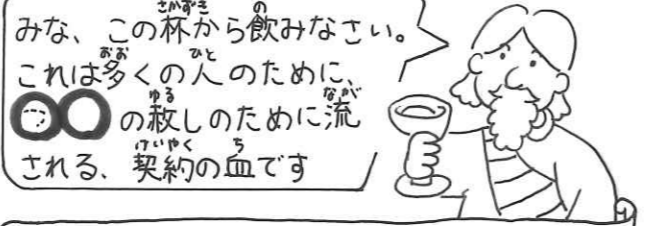 みな、この杯から飲みなさい。
これは多くの人のために、
〇〇の赦しのために流
される、契約の血です